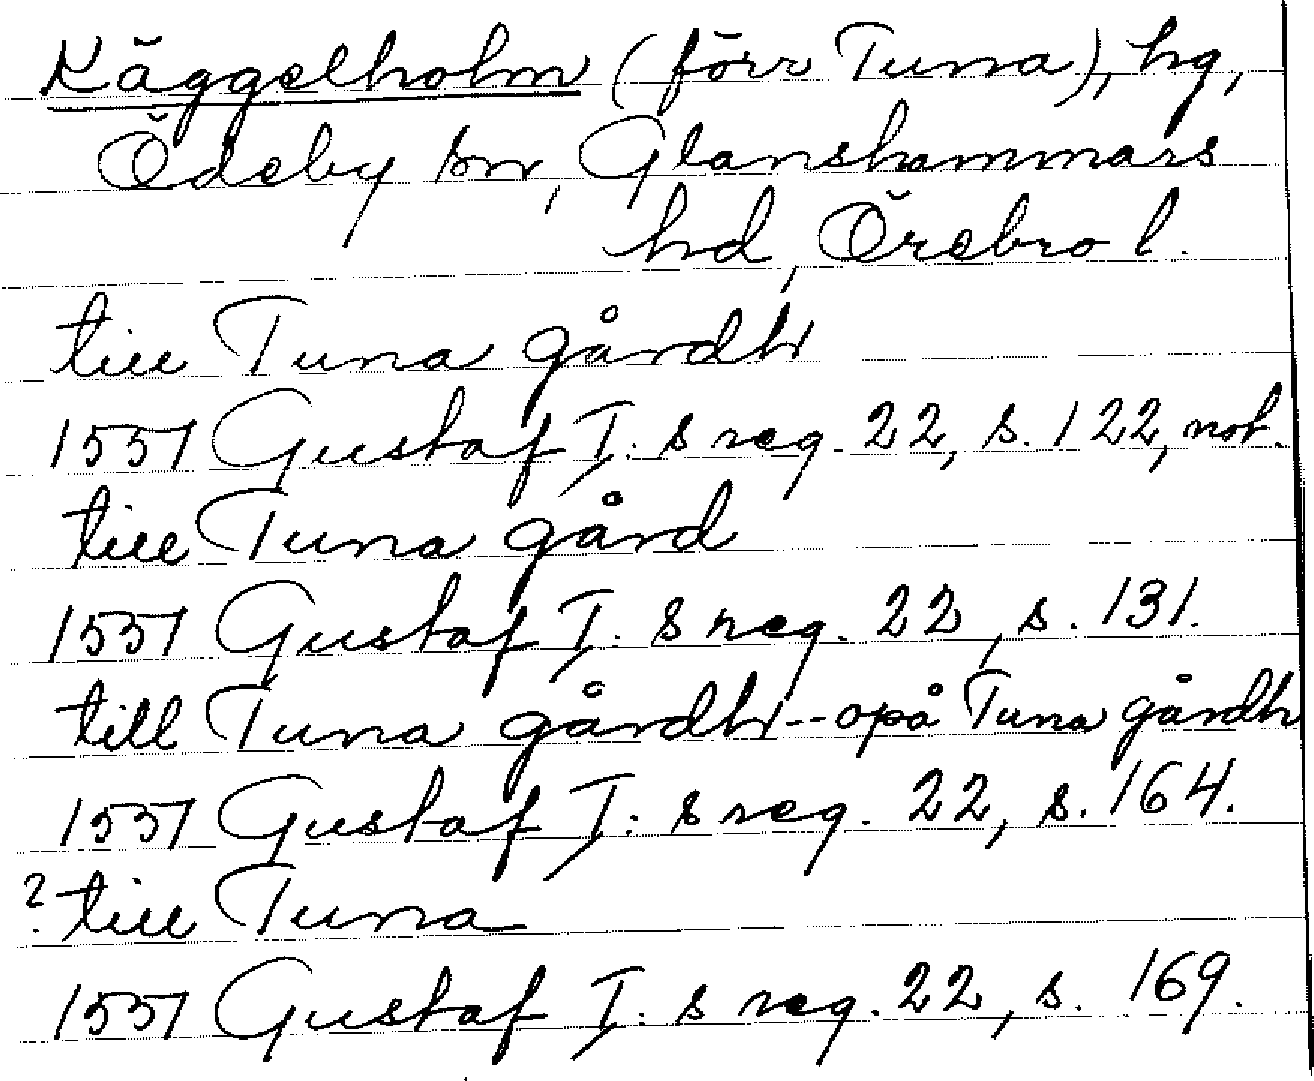 Käggelholm (förr Tuna), hg,
Ödeby sn, Glanshammars
hd, Örebro l.
till Tuna gårdh
1551 Gustaf I:s reg. 22, s. 122, not.
till Tuna gård
1551 Gustaf I:s reg. 22, s. 131.
till Tuna gårdh -- opå Tuna gårdh
1551 Gustaf I:s reg. 22, s. 164.
? till Tuna
1551 Gustaf I:s reg. 22, s. 169.